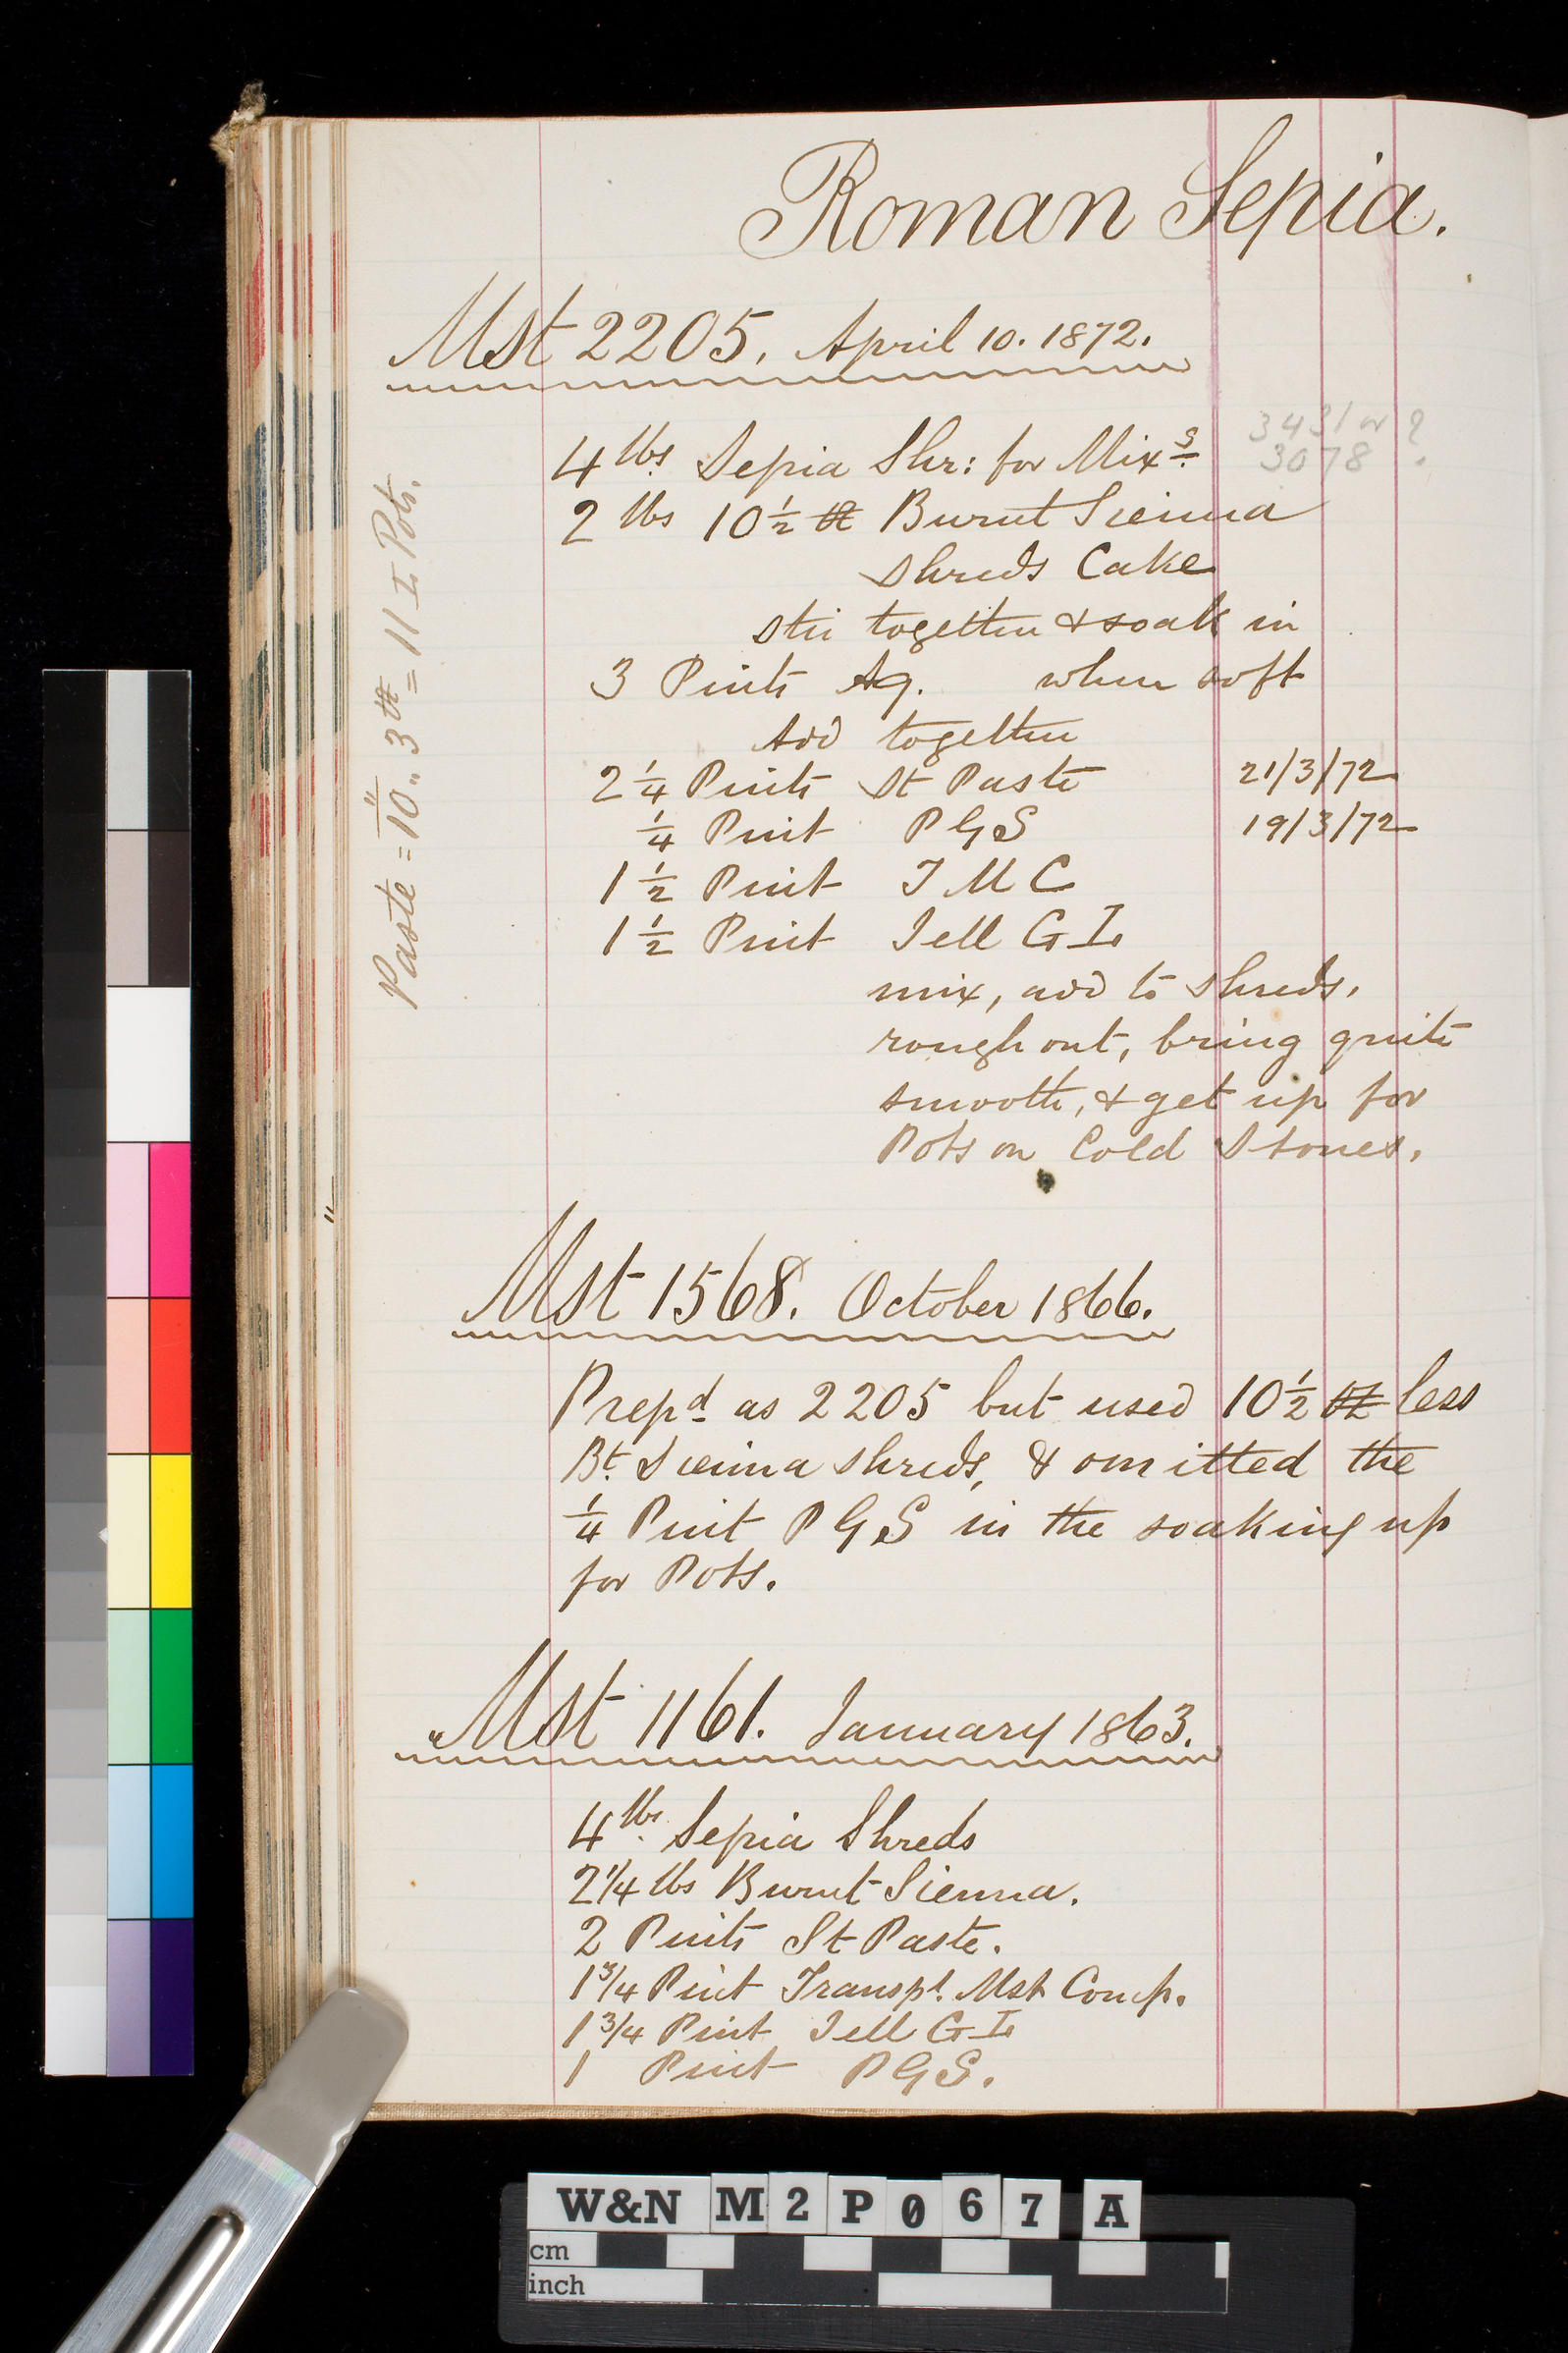 Roman Sepia.
Mst 2205. April 10. 1872.
4 lbs Sepia Shr: for Mixs. 3431 or ?
3078 ?
2 lbs 10 1/2 oz Burnt Sienna
Shreds Cake
stir together & soak in
3 Pints Aq. when soft
Add together
2 1/4 Pints St Paste 21/3/72
1/4 Pint PGS 19/3/72
1 1/2 Pint T M C
1 1/2 Pint Jell G I.
mix, add to shreds,
rough out, bring quite
smooth, & get up for
Pots on Cold Stones.
Mst 1568. October 1866.
Prepd as 2205 but used 10 1/2 oz less
Bt. Sienna shreds, & omitted the
1/4 Pint PGS in the soaking up
for Pots.
Mst 1161. January 1863.
4 lbs. Sepia Shreds
2 1/4 lbs Burnt Sienna.
2 Pints St Paste.
1 3/4 Pint Transpt. Mst Comp.
1 3/4 Pint Jell G I.
1 Pint PGS.
Paste = 10 .. 3 = 11 I Pots.
W&N M2P067 A
cm
inch